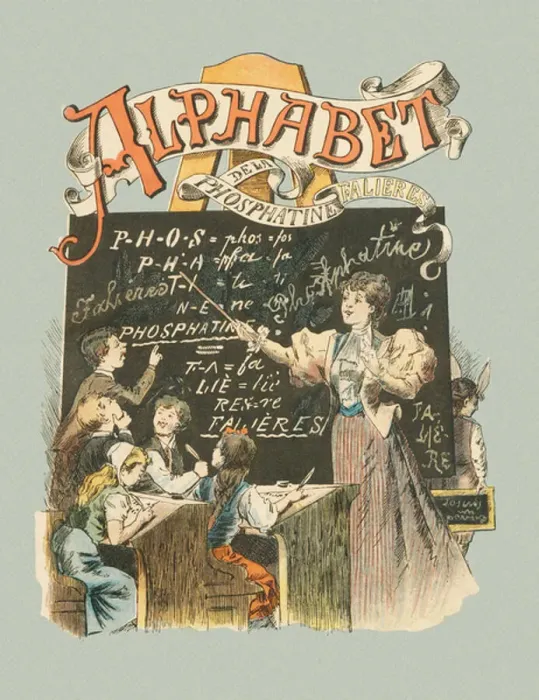 ALPHABET
DE LA
PHOSPHATINE FALIERES
P-H-O-S = phos = fos
P-H-A = pha = fa
T-Y = ti
N-E = ne
Phosphatine
Falières
PHOSPHATINE
F-A = fa
LIÈ = liè
RES = re
FALIÈRES
FA-
LIÈ-
RE